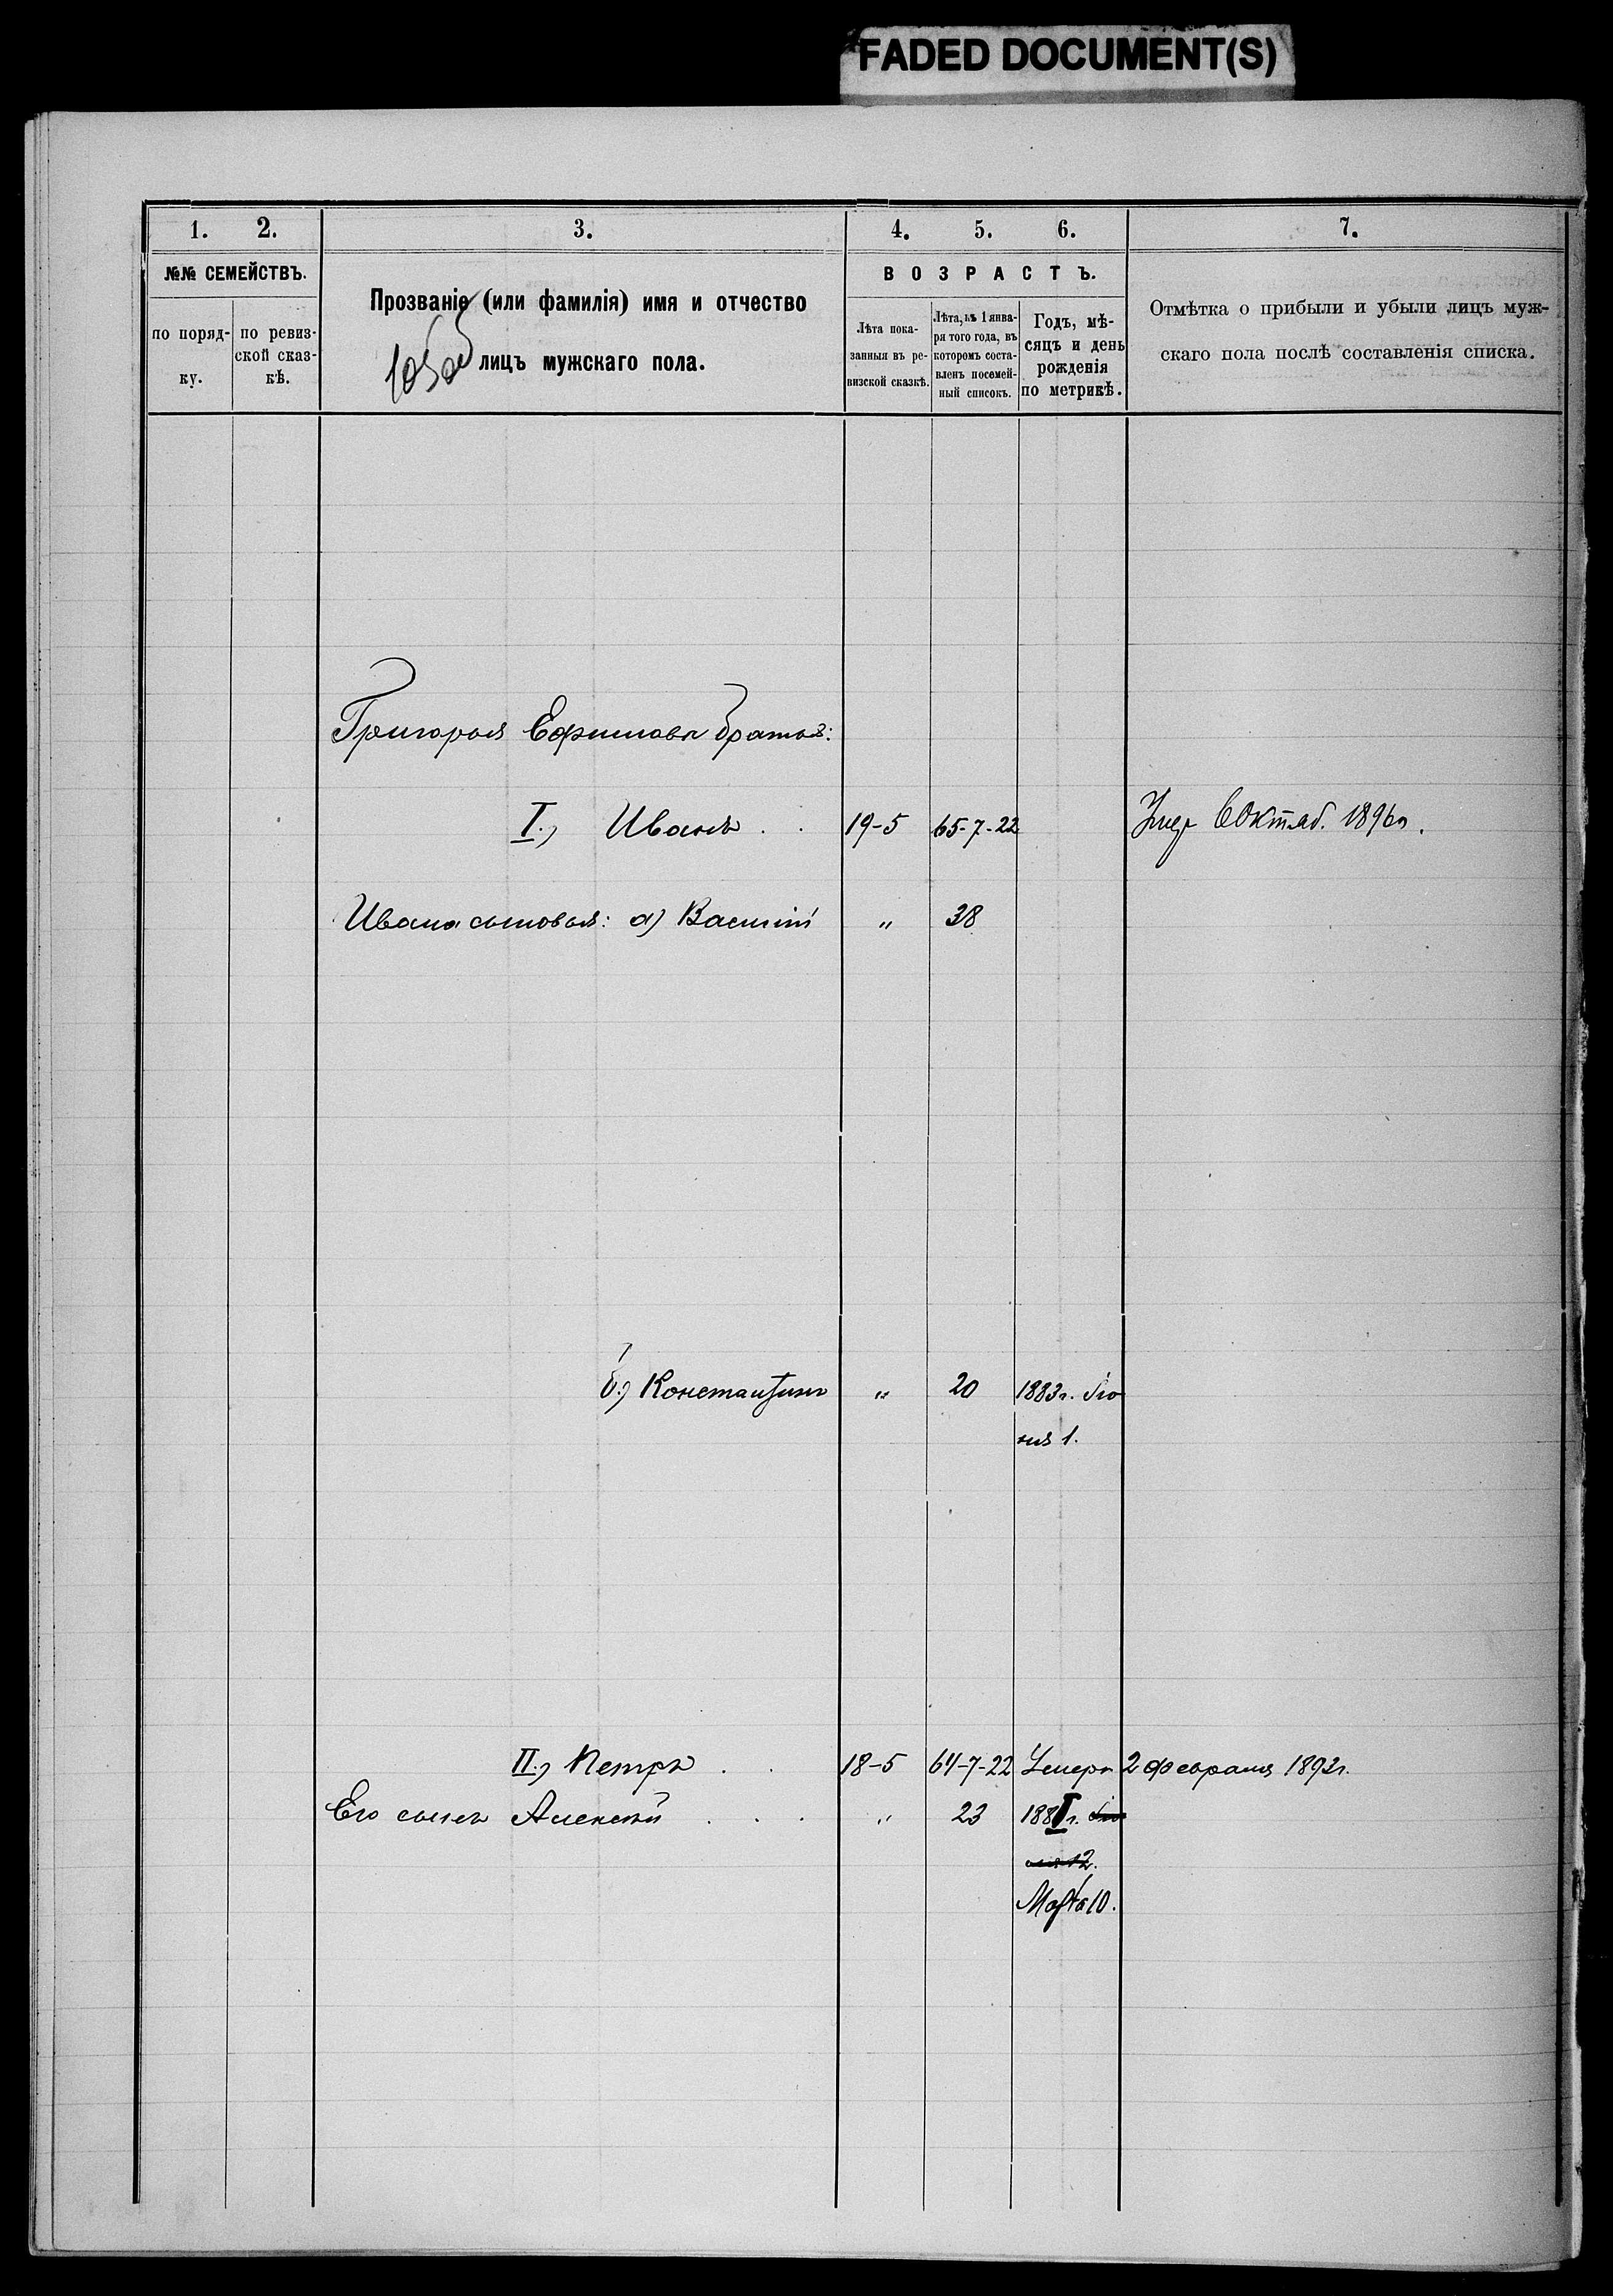 FADED DOCUMENT(S)
1. 2. 3. 4. 5. 6. 7.
№№ СЕМЕЙСТВЪ.
по поряд-
ку.
по ревиз-
ской сказ-
кѣ.
Прозваніе (или фамилія) имя и отчество
лицъ мужскаго пола.
ВОЗРАСТЪ.
Лѣта пока-
занныя въ ре-
визской сказкѣ.
Лѣта, къ 1 янва-
ря того года, въ
которомъ соста-
вленъ посемей-
ный списокъ.
Годъ, мѣ-
сяцъ и день
рожденія
по метрикѣ.
Отмѣтка о прибыли и убыли лицъ муж-
скаго пола послѣ составленія списка.
Григорья Ефимова братья:
I.) Иванъ . . 19-5 65-7-22 Умер 6 Октяб. 1896г.
Ивана сыновья: а) Василій " 38
б.) Константинъ " 20 1883г. Iю
ня 1.
II.) Петръ . . 18-5 64-7-22 Умеръ 2 февраля 1892г.
Его сынъ Алексѣй . . . " 23 1881г. Iю
ля 12.
Марта 10.